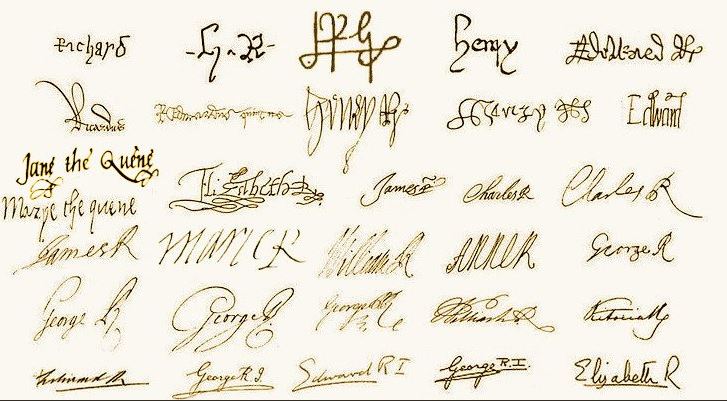 Richard H R HRG Henry Edward R
Ricardus Henry R Henry R Edward
Jane the Quene
Elizabeth R James R Charles R Charles R
Marye the quene
James R MARIE R William R ANNE R George R
George R George R George R William R Victoria R
Edward R George R.I. Edward R I George R.I. Elizabeth R